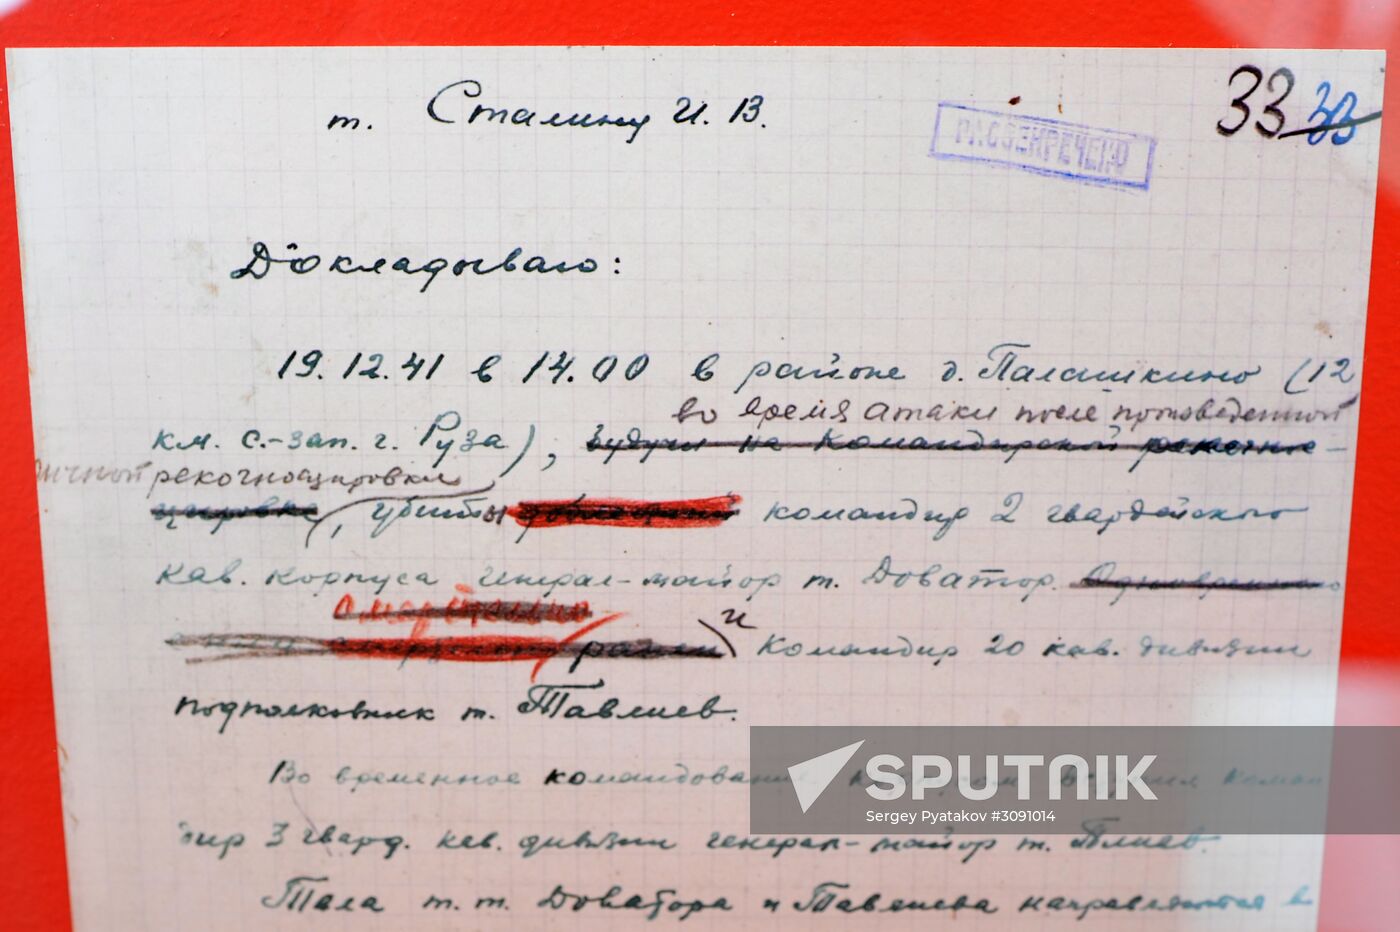 т. Сталину И. В.
33 33
РАССЕКРЕЧЕНО
Докладываю:
19.12.41 в 14.00 в районе д. Палашкино (12
во время атаки после произведенной
км. с.-зап. г. Руза), будучи на командирской рекогно-
личной рекогносцировки
сцировке, убиты командир 2 гвардейского
кав. корпуса генерал-майор т. Доватор. Одновременно
смертельно
ранен и командир 20 кав. дивизии
подполковник т. Тавлиев.
Во временное командование корпусом вступил коман
дир 3 гвард. кав. дивизии генерал-майор т. Плиев.
Тела т.т. Доватора и Тавлиева направляются в
SPUTNIK
Sergey Pyatakov #3091014